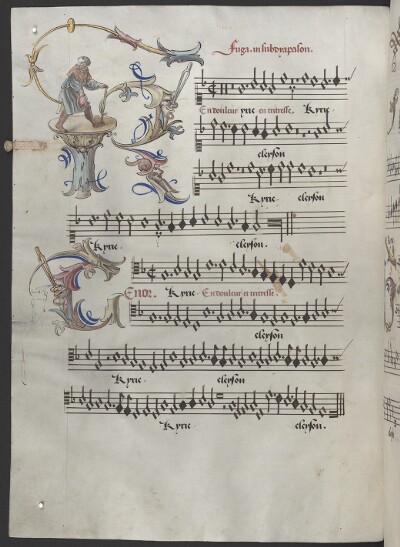 Fuga in subdyapason.
En douleur yrie en tristesse. Kyrie
eleyson
Kyrie eleyson
Kyrie eleyson.
Tenor. Kyrie En douleur et tristesse.
eleyson
Kyrie eleyson
Kyrie eleyson.